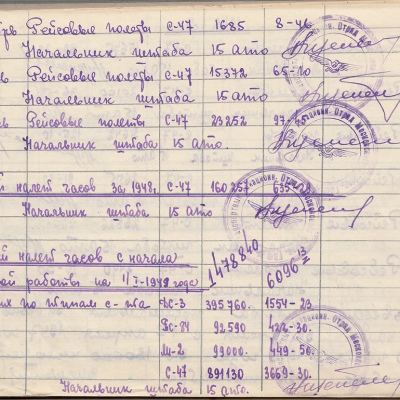 рь Рейсовые полеты С-47 1685 8-46
Начальник штаба 15 ато
ь Рейсовые полеты С-47 15372 65-10
Начальник штаба 15 ато
ь Рейсовые полеты С-47 23252
Начальник штаба 15 ато.
й налет часов за 1948г. С-47
Начальник штаба 15 ато
й налет часов с начала
ой работы на 1/I-1949 года 1478840 6096
их по типам с-та ДС-3 395760. 1554-23
92590 422-30.
99000. 449-50.
С-47 891130 3669-30.
Начальник штаба 15 ато.